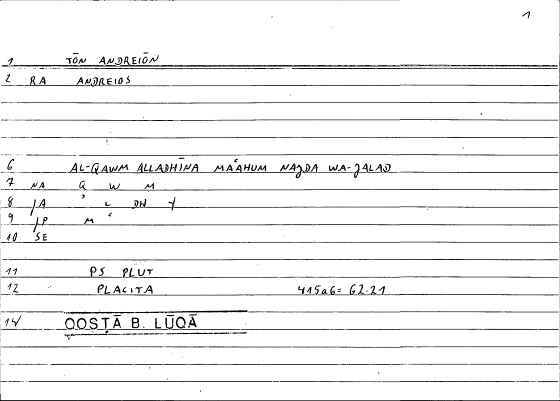 1
1 TŌN ANDREIŌN
2 RA ANDREIOS
6 AL-QAWM ALLADHĪNA MAʿAHUM NAJDA WA-JALAD
7 NA Q W M
8 /A ʾ L DH Y
9 /P M ʿ
10 SE
11 PS PLUT
12 PLACITA 415a6= 62.21
14 QOSṬĀ B. LŪQĀ